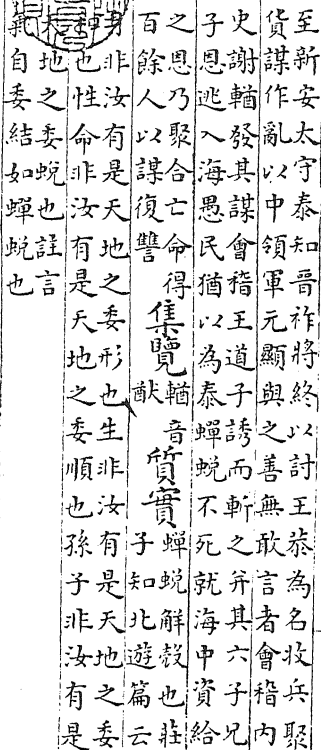 至新安太守泰知晉祚將終以討王恭為名收兵聚
貨謀作亂以中領軍元顯與之善無敢言者會稽內
史謝輶發其謀會稽王道子誘而斬之并其六子兄
子恩逃入海愚民猶以為泰蟬蛻不死就海中資給
之恩乃聚合亡命得
百餘人以謀復讐
集覽
輶音
猷
質實
蟬蛻解殼也莊
子知北遊篇云
身非汝有是天地之委形也生非汝有是天地之委
和也性命非汝有是天地之委順也孫子非汝有是
天地之委蛻也註言
氣自委結如蟬蛻也